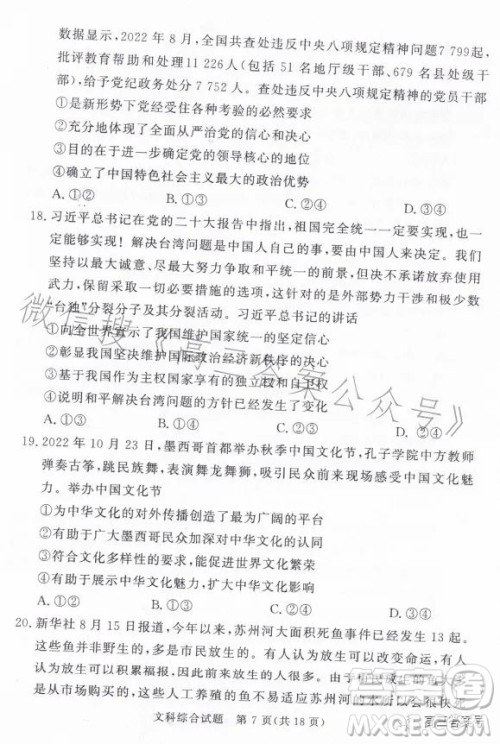 数据显示，2022 年 8 月，全国共查处违反中央八项规定精神问题 7 799 起，
批评教育帮助和处理 11 226 人（包括 51 名地厅级干部、679 名县处级干
部），给予党纪政务处分 7 752 人。查处违反中央八项规定精神的党员干部
①是新形势下党经受住各种考验的必然要求
②充分地体现了全面从严治党的信心和决心
③能确立中国共产党的领导核心的地位
④确立了中国特色社会主义最大的政治优势
A.①② B.①③ C.②④ D.③④
18. 习近平总书记在党的二十大报告中指出，祖国完全统一一定要实现，也一
定能够实现！解决台湾问题是中国人自己的事，要由中国人来决定。我们
坚持以最大诚意、尽最大努力争取和平统一的前景，但决不承诺放弃使用
武力，保留采取一切必要措施的选项，这针对的是外部势力干涉和极少数
“台独”分裂分子及其分裂活动。习近平总书记的讲话
①向全世界宣示了我国维护国家统一的坚定信心
②彰显我国坚决维护国际政治经济新秩序的决心
③基于我国作为主权国家享有的独立权和自卫权
④说明和平解决台湾问题的方针已经发生了变化
A.①③ B.①④ C.②③ D.②④
19. 2022 年 10 月 23 日，墨西哥首都举办秋季中国文化节，孔子学院中方教师
弹奏古筝，跳民族舞，表演舞龙舞狮，吸引民众前来现场感受中国文化魅
力。举办中国文化节
①为中华文化的对外传播创造了最广阔的平台
②有助于广大墨西哥民众对中华文化的认同
③符合文化多样性要求，能促进世界文化繁荣
④有助于展示中华文化魅力，扩大中华文化影响
A.①② B.①③ C.②④ D.③④
20. 新华社 8 月 15 日报道，今年以来，苏州河大面积死鱼事件已经发生 13 起。
这些鱼并非野生的，多是市民放生的。有人认为放生可以改变命运，有人
认为放生可以积累福报，因此放生的人越来越多。但人们放生的鱼很多是
从市场购买的，这些人工养殖的鱼不易适应苏州河的水
文科综合试题 第 7 页（共 18 页）
微信搜《高三答案公众号》